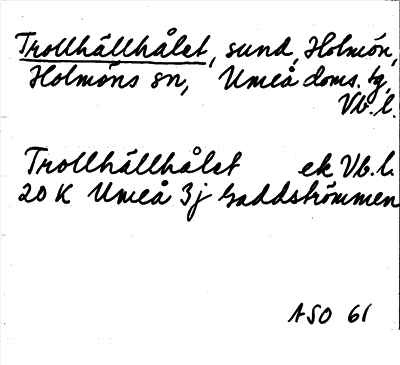 Trollhällhålet, sund, Holmön,
Holmöns sn, Umeå doms. tg,
Vb. l.
Trollhällhålet ek Vb. l.
20 K Umeå 3j Gaddströmmen
ASO 61